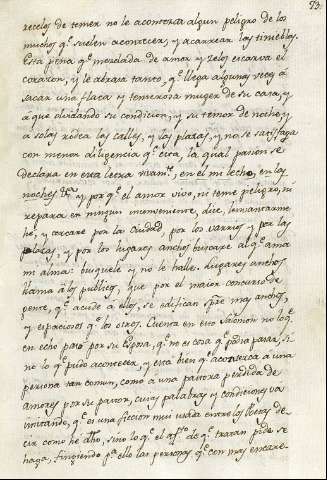 93.
recelos de temer no le acontezca algun peligro de los
muchos q.e suelen acontecer, y acarrear las tinieblas.
Esta pena q.e mezclada de amor y zelos escarva el
corazon, y le abrasa tanto, q.e llega algunas veces á
sacar una flaca y temerosa muger de su casa, y
a que olvidando su condicion, y su temor de noche, y
a solas rodea las calles, y las plazas, y no se satisfaga
con menor diligencia q.e esta, la qual pasion se
declara en esta letra en el mi lecho, en las
noches &.a y por q.e el amor vivo, ni teme peligro, ni
repara en ningun inconveniente, dice, levantarme
he, y cercare por la Ciudad, por los varrios y por las
plazas, y por los lugares anchos buscare al q.e ama
mi alma: busquele y no le halle. Lugares anchos
llama á los publicos, que por el mayor concurso de
gente, q.e acude á ellos, se edifican mas anchos,
y espaciosos q.e los otros. Cuenta en esto Salomon no lo q.e
en echo pasó por su Esposa, q.e no es cosa q.e podia pasar, si
no lo q.e pudo acontecer, y está bien q.e acontezca a una
persona tan comun, como a una pastora perdida de
amores por su pastor, cuias palabras y condiciones va
imitando, q.e es una ficcion mui usada entre los Poetas de
cir como he dho, sino lo q.e el de q.e tratan pide se
haga, fingiendo p.a ello las personas q.e con mas encare-